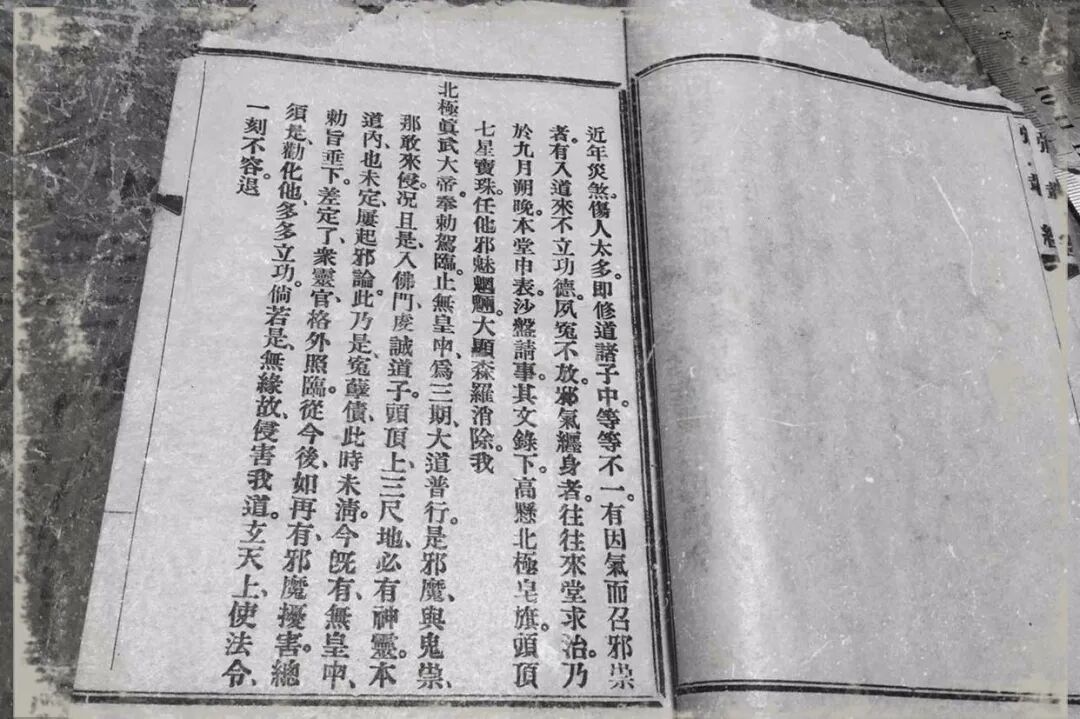 近年災煞傷人太多。即修道諸子中。等等不一。有因氣而召邪祟
者。有入道來不立功德。夙冤不放。邪氣纏身者。往往來堂求治。乃
於九月朔晚。本堂申表。沙盤請事。其文錄下。高懸北極皂旗。頭頂
七星寶珠。任他邪魅魍魎。大顯森羅消除。我
北極眞武大帝。奉勅駕臨。止無皇申、爲三期、大道普行。是邪魔、與鬼祟、
那敢來侵。况且是、入佛門、虔誠道子。頭頂上、三尺地、必有神靈。本
道內、也未定、屢起邪論。此乃是、冤孽債、此時未淸。今旣有、無皇申、
勅旨垂下。差定了、衆靈官、格外照臨。從今後、如再有、邪魔擾害。總
須是、勸化他、多多立功。倘若是、無緣故、侵害我道。玄天上、使法令、
一刻不容。退